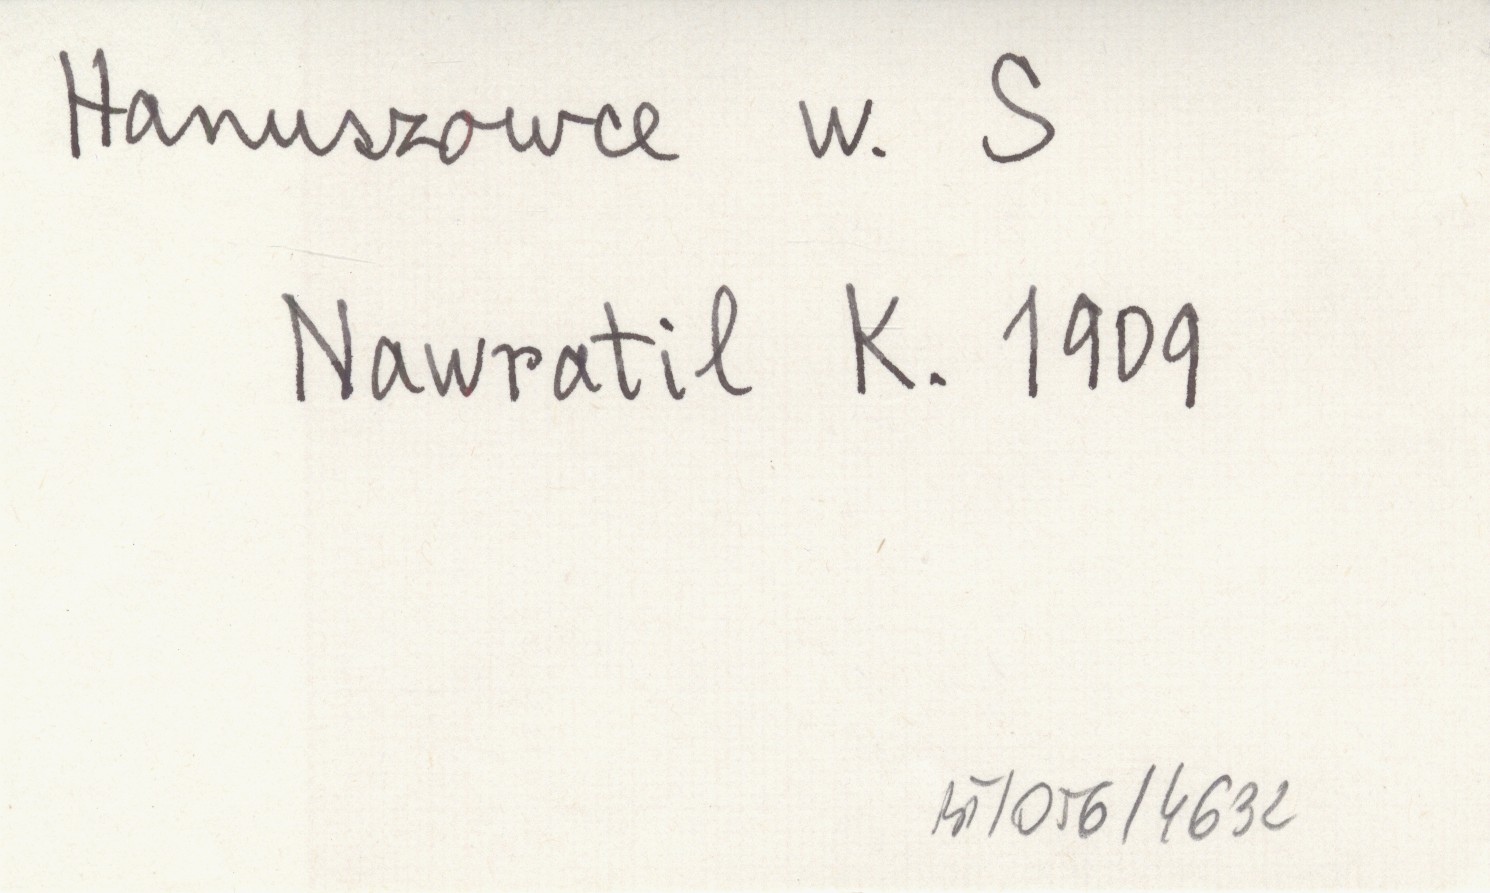 Hanuszowce w. S
Nawratil K. 1909
/056/4632